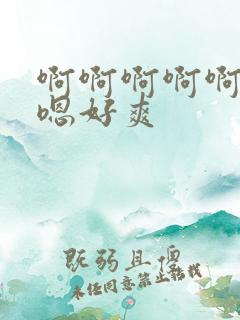 啊啊啊啊啊
嗯好爽
既弱且傻
未经同意禁止转载